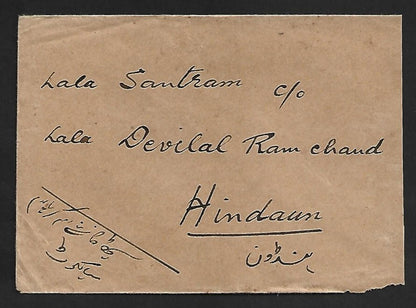 Lala Santram c/o
Lala Devilal Ram chand
Hindaun
ہنڈون
سیالکوٹ